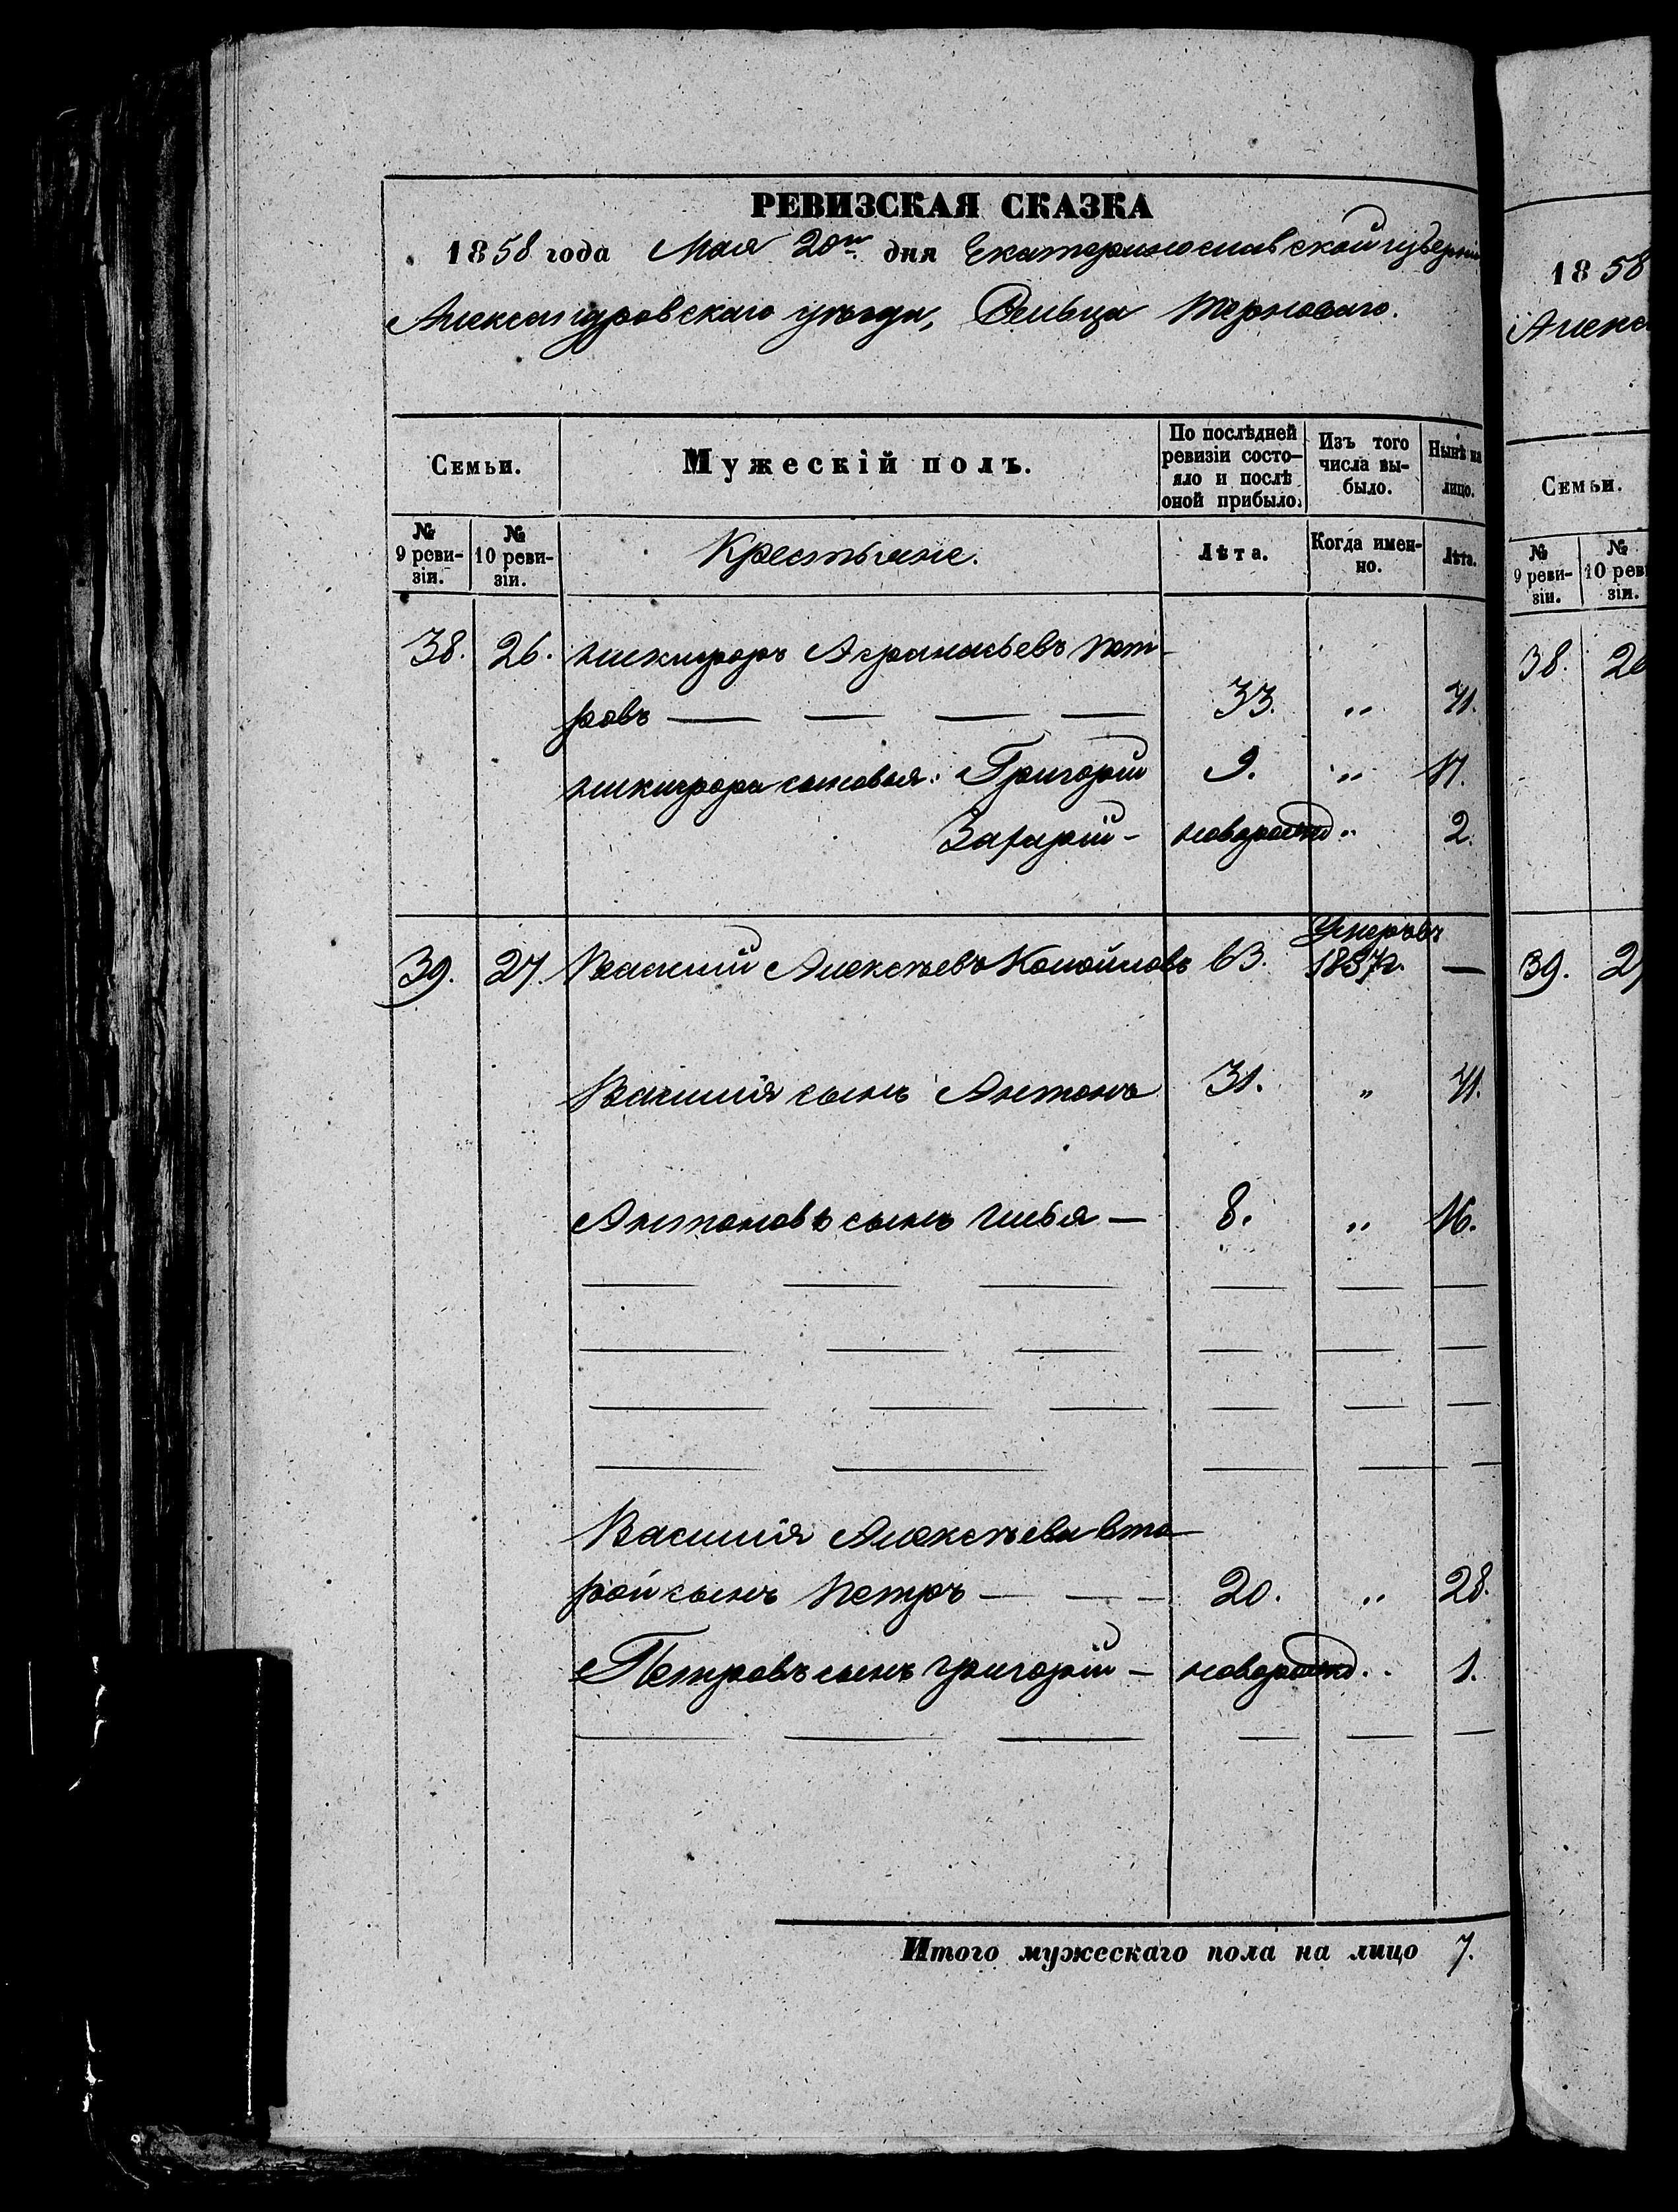 РЕВИЗСКАЯ СКАЗКА
1858 года Мая 20го дня Екатеринославской губерніи
Александровскаго уѣзда, Сельца Терноваго.
Семьи.
Мужескій полъ.
По послѣдней ревизіи состояло и послѣ оной прибыло.
Изъ того числа выбыло.
Нынѣ на лицо.
№ 9 ревизіи.
№ 10 ревизіи.
Крестьяне.
Лѣта.
Когда именно.
Лѣта.
38. 26. Никифоръ Афанасьевъ Пет-
ровъ 33. „ 41.
Никифора сыновья: Григорій 9. „ 17.
Захарій - новорожд „ 2.
39. 27. Василій Алексѣевъ 63. Умеръ въ 1857г. —
Василія сынъ Антонъ 31. „ 41.
Антоновъ сынъ Илья — 8. „ 16.
Василія Алексѣева вто-
рой сынъ Петръ — 20. „ 28.
Петровъ сынъ Григорій — новорожд. „ 1.
Итого мужескаго пола на лицо 7.
18 58
Алекс
Семьи.
№ 9 ревизіи.
№ 10 реви
зіи.
38. 26
39. 27